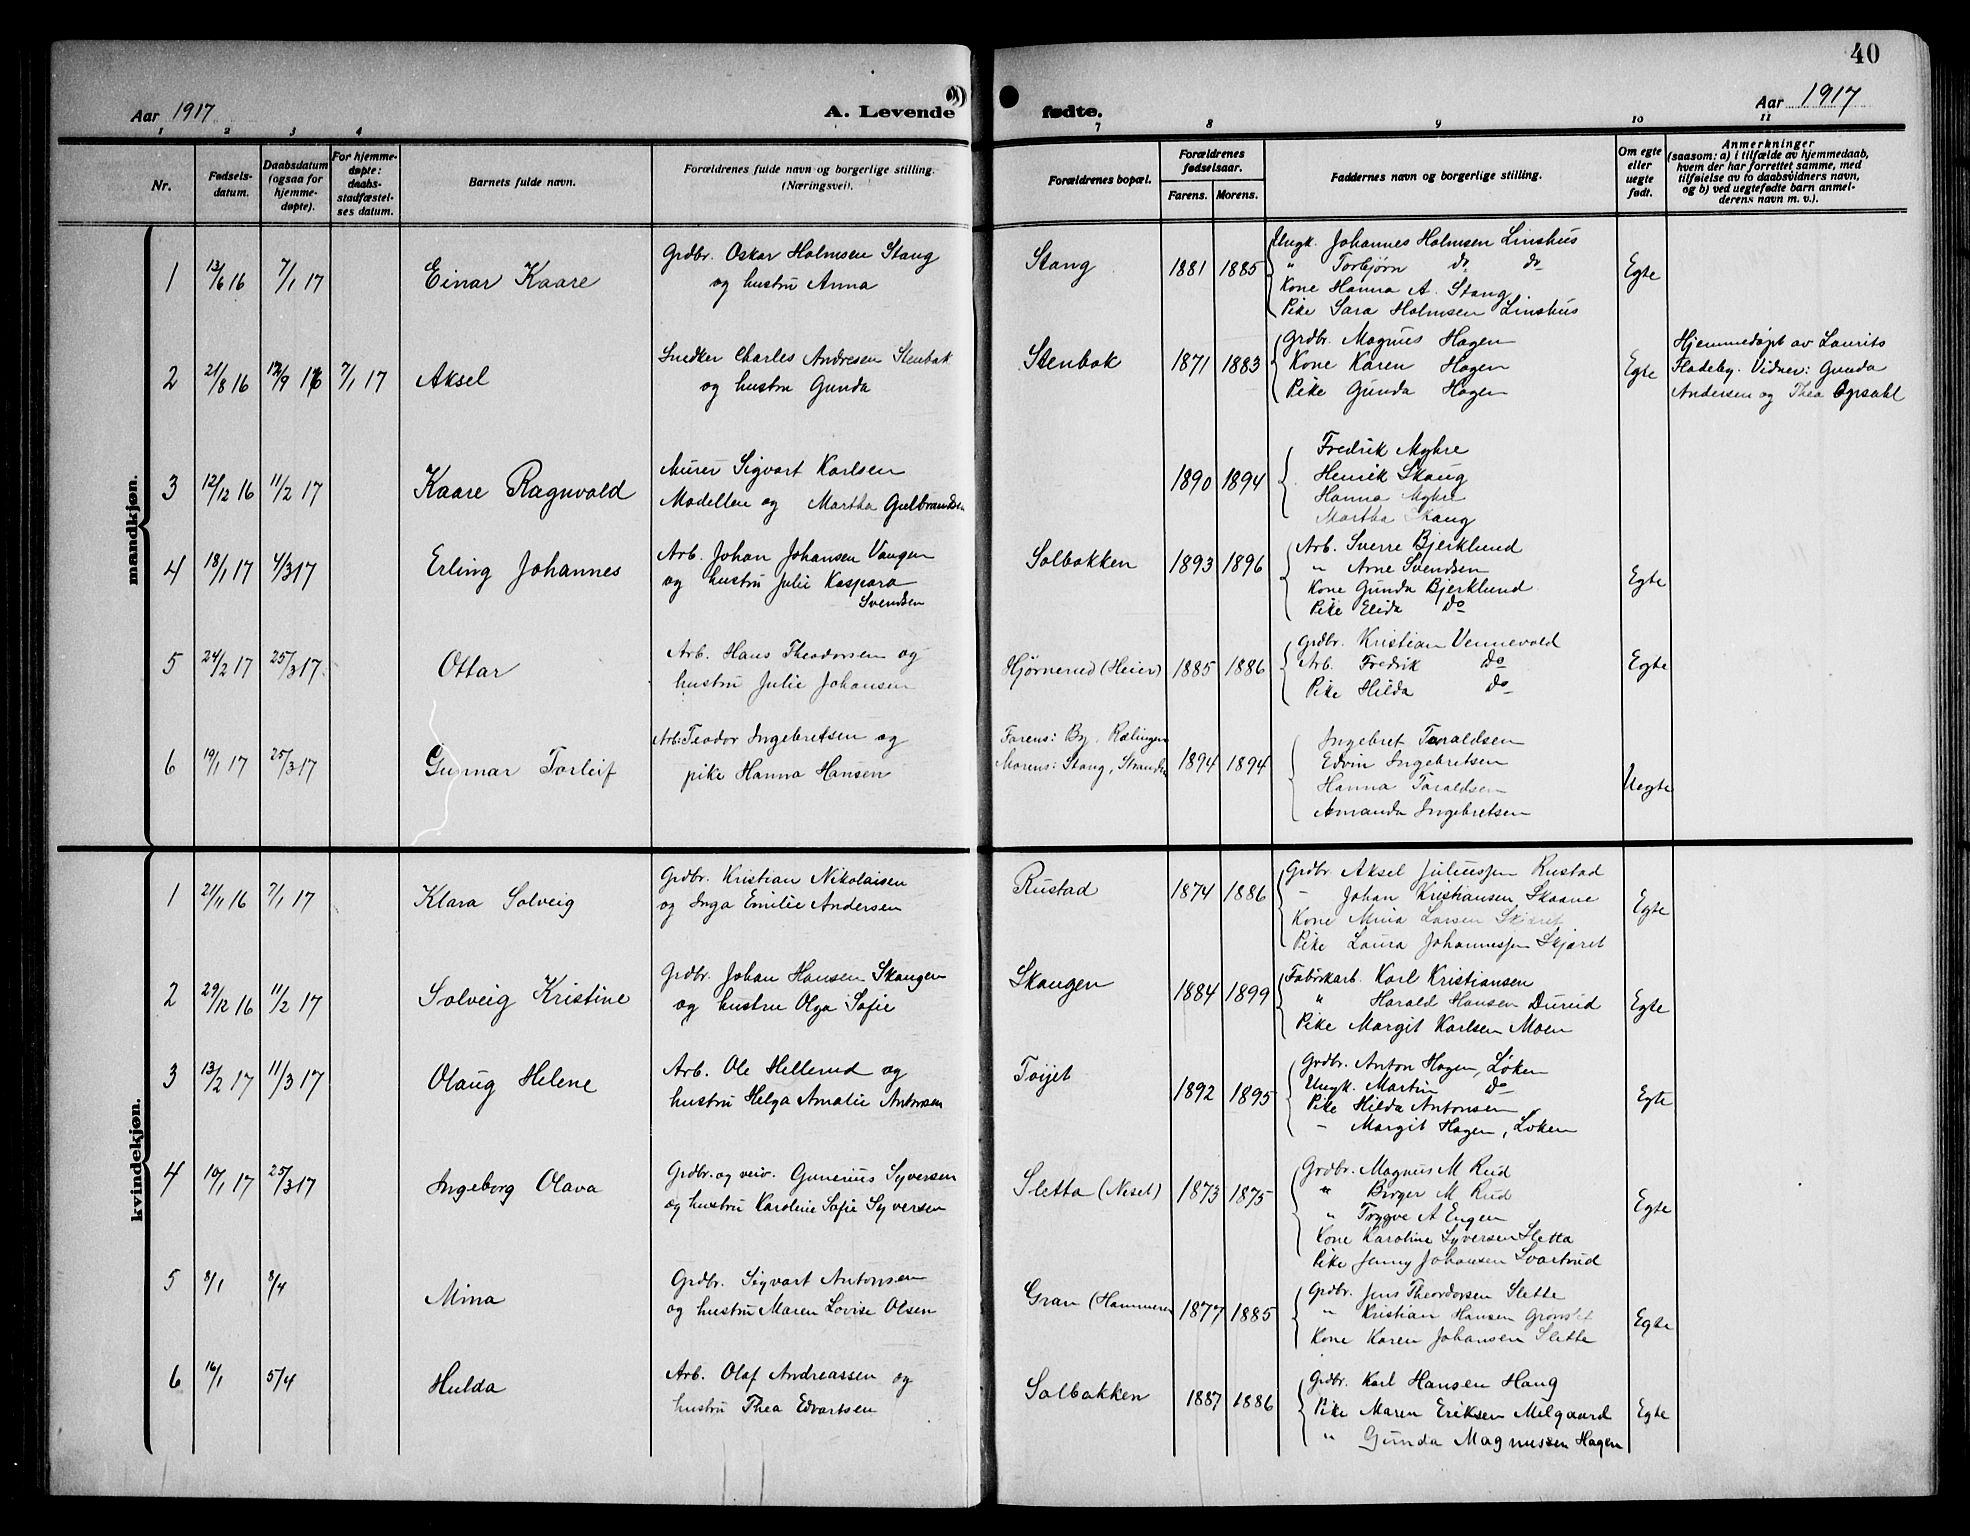 40
Aar 1917
A. Levende
fødte.
Aar 1917
1 2 3 4 7 8 9 10 11
Nr.
Fødsels-
datum.
Daabsdatum
(ogsaa for
hjemme-
døpte).
For hjemme-
døpte:
daabs-
stadfæstel-
ses datum.
Barnets fulde navn.
Forældrenes fulde navn og borgerlige stilling.
(Næringsvei).
Forældrenes bopæl.
Forældrenes
fødselsaar.
Farens. Morens.
Faddernes navn og borgerlige stilling.
Om egte
eller
uegte
født.
Anmerkninger
(saasom: a) i tilfælde av hjemmedaab,
hvem der har forrettet samme, med
tilføielse av to daabsvidners navn,
og b) ved uegtefødte barn anmel-
derens navn m. v.).
mandkjøn.
1 13/6 16 7/1 17 Einar Kaare
Grdbr. Oskar Holmsen Stang
og hustru Anna
Stang 1881 1885
Ungk. Johannes Holmsen Linshus
" Torbjørn do do
Kone Hanna A. Stang
Pike Sara Holmsen Linshus
Egte
2 21/8 16 17/9 16 7/1 17 Aksel
Snedker Charles Andresen Stenbak
og hustru Gunda
Stenbak 1871 1883
Grdbr. Magnus Hagen
Kone Karen Hagen
Pike Gunda Hagen
Egte
Hjemmedøpt av Laurits
Fladeby. Vidner: Gunda
Andersen og Thea Opsahl
3 12/12 16 11/2 17 Kaare Ragnvald
Murer Sigvart Karlsen
Modellen og Martha Gulbrandsen
1890 1894
Fredrik Myhre
Henrik Skaug
Hanna Myhre
Martha Skaug
4 18/1 17 4/3 17 Erling Johannes
Arb. Johan Johansen Vangen
og hustru Julie Kaspara
Svendsen
Solbakken 1893 1896
Arb. Sverre Bjerklund
" Arne Svendsen
Kone Gunda Bjerklund
Pike Elida do
Egte
5 24/2 17 25/3 17. Ottar
Arb. Hans Theodorsen og
hustru Julie Johansen
Hjørnerud (Heier) 1885 1886
Grdbr. Kristian Vennevold
Arb. Fredrik do
Pike Hilda do
Egte
6 19/1 17 25/3 17 Gunnar Torleif
Arb. Teodor Ingebretsen og
pike Hanna Hansen
Farens: By, Rælingen
Morens: Stang, Stranden
1894 1894
Ingebret Toraldsen
Edvin Ingebretsen
Hanna Toraldsen
Amanda Ingebretsen
Uegte
kvindekjøn.
1 21/11 16 7/1 17 Klara Solveig
Grdbr. Kristian Nikolaisen
og Inga Emilie Andersen
Rustad 1874 1886
Grdbr. Aksel Juliussen Rustad
– Johan Kristiansen Skaane
Kone Mina Larsen Skjæret
Pike Laura Johannessen Skjæret
Egte
2 29/12 16 11/2 17 Solveig Kristine
Grdbr. Johan Hansen Skaugen
og hustru Olga Sofie
Skaugen 1884 1899
Fabrikarb. Karl Kristiansen
" Harald Hansen Durud
Pike Margit Karlsen Moen
Egte
3 13/2 17 11/3 17 Olaug Helene
Arb. Ole Hellerud og
hustru Helga Amalie Antonsen
Tøyet 1892 1895
Grdbr. Anton Hagen, Løken
Ungk. Martin do
Pike Hilda Antonsen
– Margit Hagen, Løken
Egte
4 10/1 17 25/3 17 Ingeborg Olava
Grdbr. og veiv. Gunerius Syversen
og hustru Karoline Sofie Syversen
Sletta (Neset) 1873 1875
Grdbr. Magnus M Rud
" Birger M Rud
" Trygve A Engen
Kone Karoline Syversen Sletta
Pike Jenny Johansen Svartrud
Egte
5 8/1 8/4 Mina
Grdbr. Sigvart Antonsen
og hustru Maren Lovise Olsen
Gran (Hammeren 1877 1885
Grdbr. Jens Theordorsen Slette
" Kristian Hansen
Kone Karen Johansen Slette
Egte
6 16/1 5/4 Hulda
Arb. Olaf Andreassen og
hustru Thea Edvartsen
Solbakken 1887 1886
Grdbr. Karl Hansen Haug
Pike Maren Eriksen Melgaard
" Gunda Magnussen Hagen
Egte